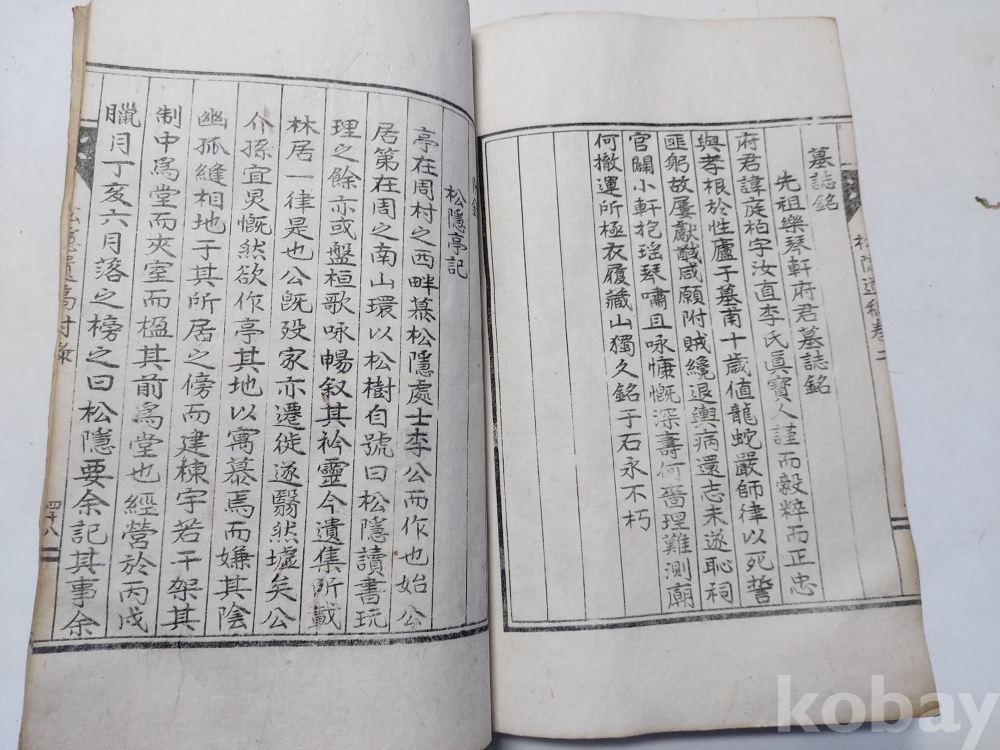 松隱遺稿卷二
墓誌銘
先祖樂琴軒府君墓誌銘
府君諱庭栢字汝直李氏眞寶人謹而毅粹而正忠
與孝根於性廬于墓甫十歲値龍蛇嚴師律以死誓
匪躬故屢獻馘咸願附賊纔退輿病還志未遂恥祠
官闢小軒抱瑶琴嘯且咏慷慨深壽何嗇理難測廟
何撤運所極衣履藏山獨久銘于石永不朽
附錄
松隱亭記
亭在周村之西畔慕松隱處士李公而作也始公
居第在周之南山環以松樹自號曰松隱讀書玩
理之餘亦或盤桓歌咏暢叙其衿靈今遺集所載
林居一律是也公旣歿家亦遷徙遂翳然墟矣公
介孫宜炅慨然欲作亭其地以寓慕焉而嫌其陰
幽孤縫相地于其所居之傍而建棟宇若干架其
制中爲堂而夾室而楹其前爲堂也經營於丙戌
臘月丁亥六月落之榜之曰松隱要余記其事余
松隱遺稿附錄
四十八
kobay